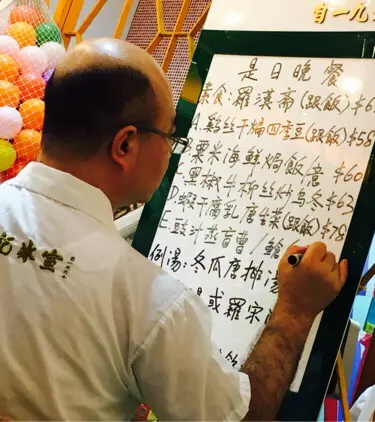 自一九
是日晚餐
素食:羅漢齋(跟飯)$6
A.雞絲干煸四季豆(跟飯)$58
粟米海鮮焗飯/意 $60
C.黑椒牛柳絲炒烏冬$62
D.蝦干腐乳唐生菜(跟飯)$78
E.豉汁蒸盲曹/鯇
例湯:冬瓜唐排湯
湯或羅宋
冰室